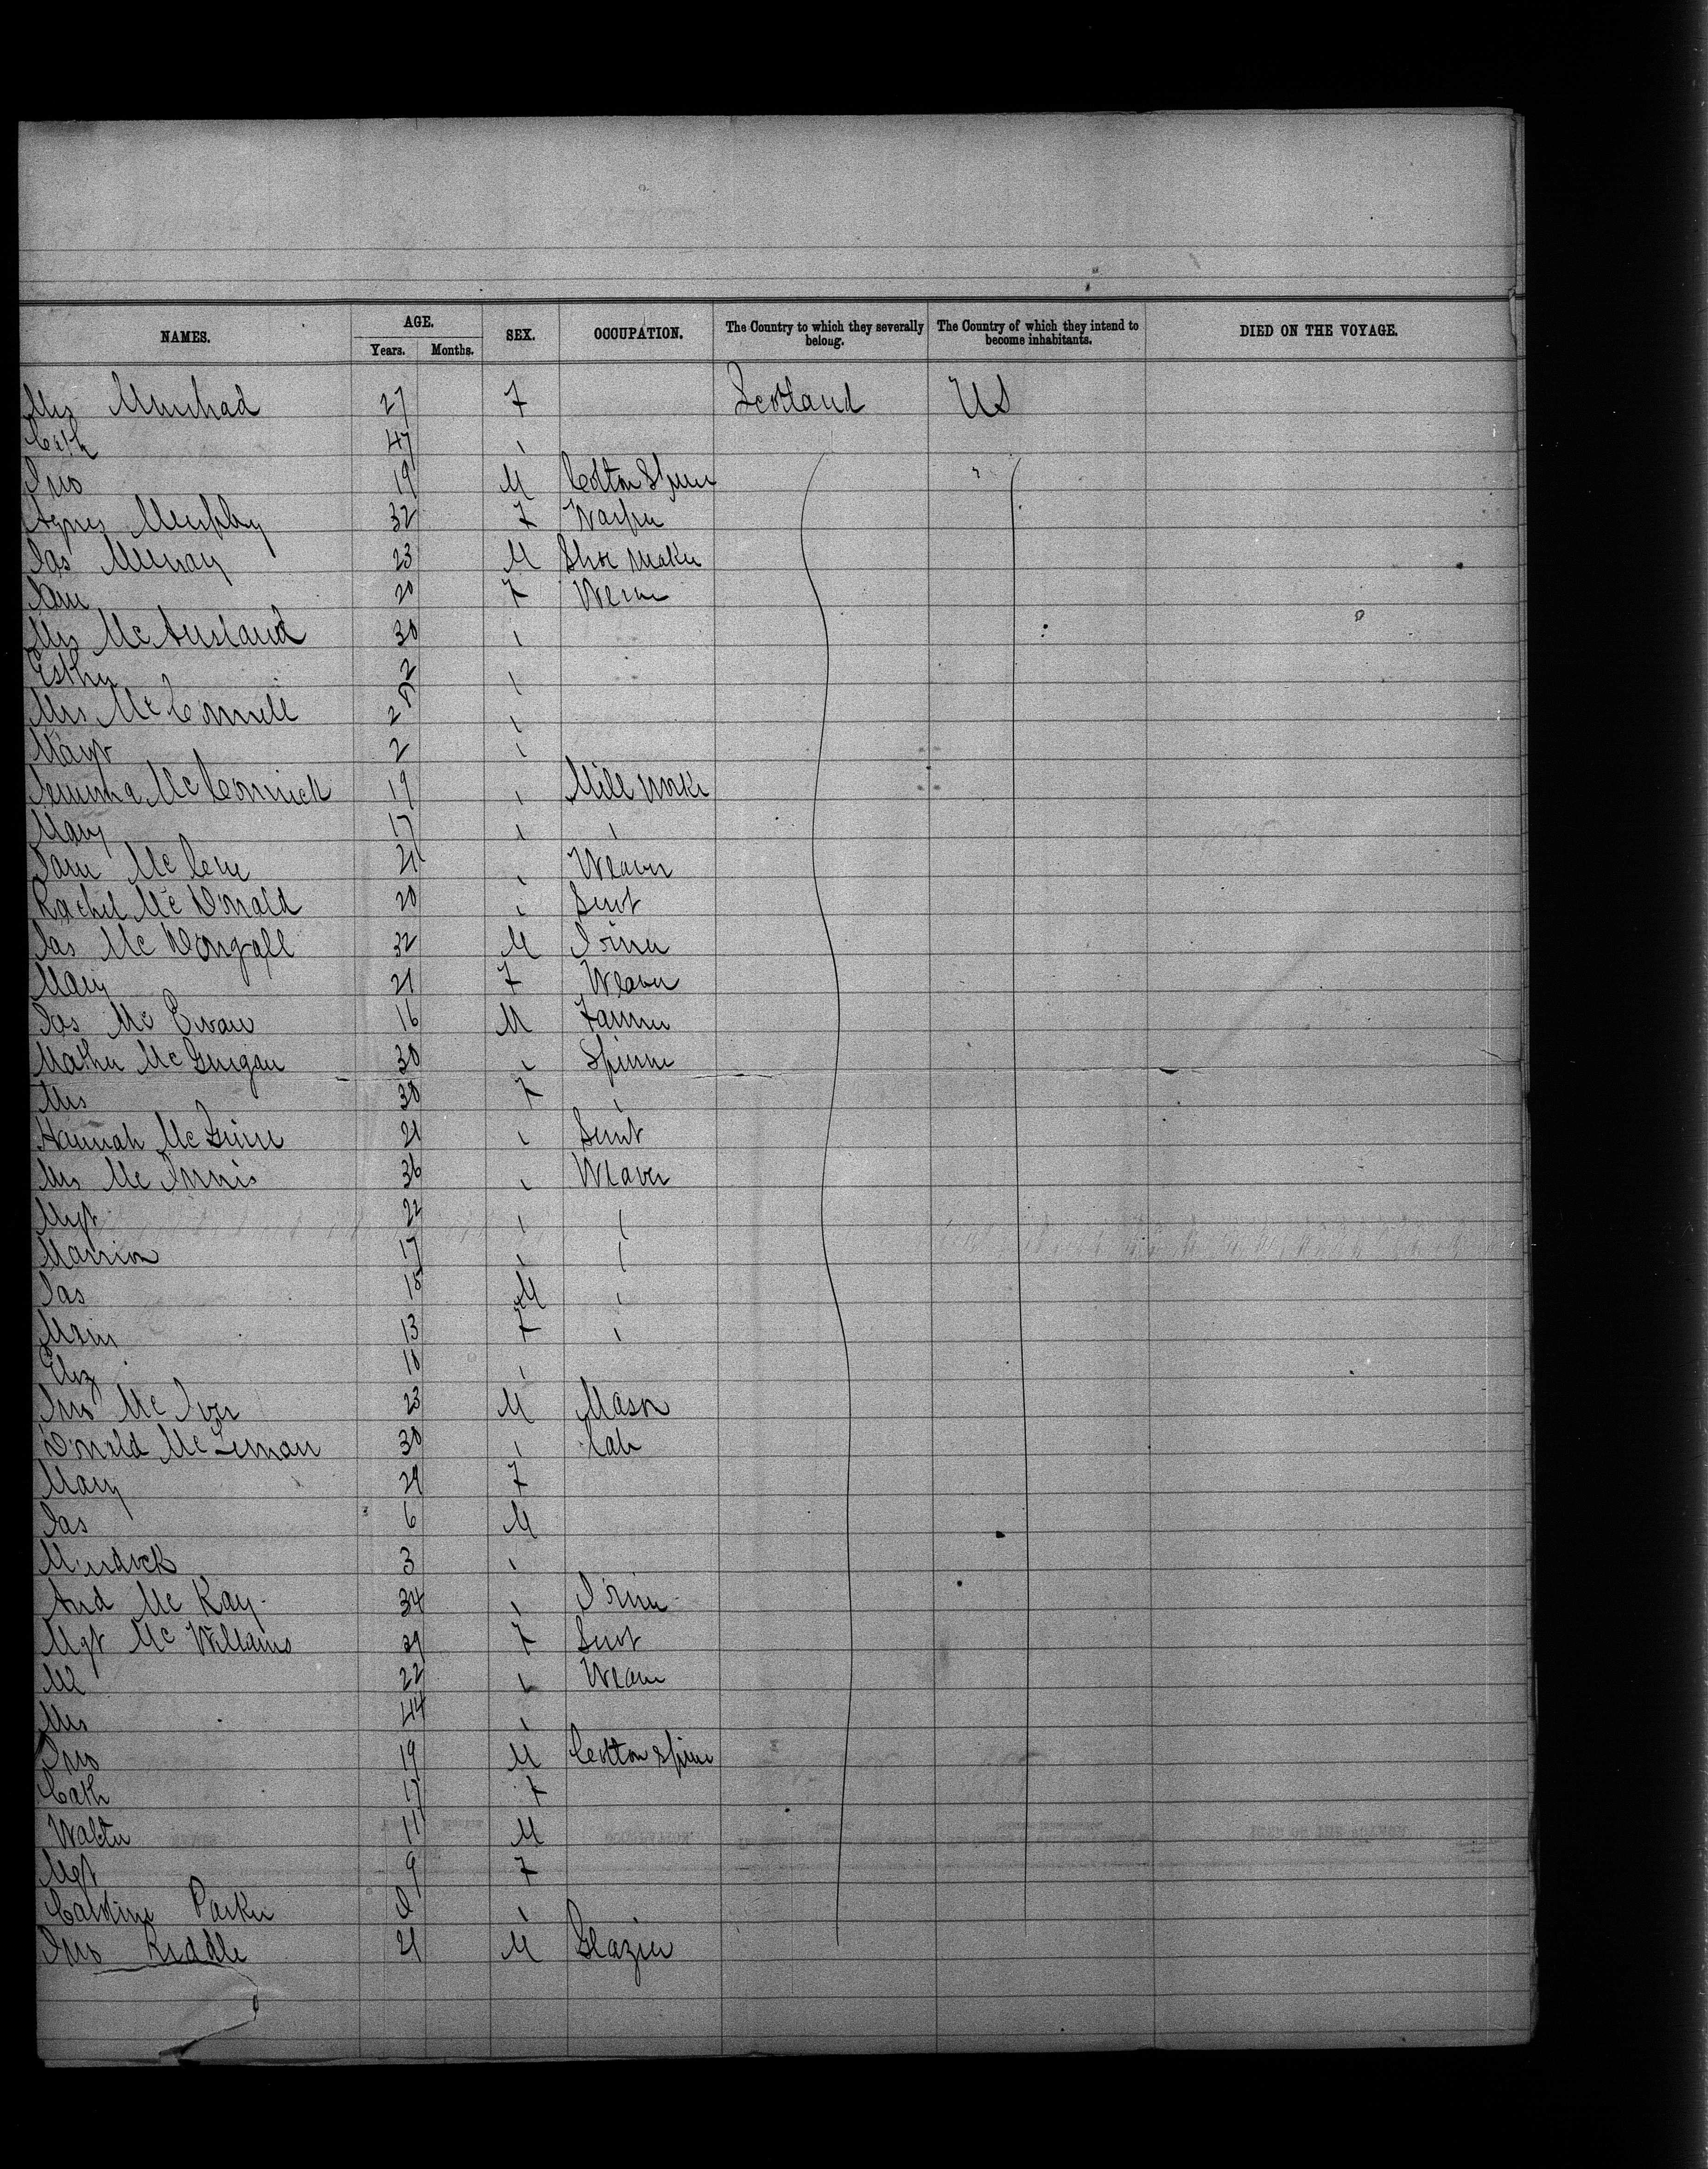 NAMES. AGE. Years. Months. SEX. OCCUPATION. The Country to which they severally belong. The Country of which they intend to become inhabitants. DIED ON THE VOYAGE.
Mrs Muirhad 27 F Scotland US
Cath 47 "
Jno 19 M Cotton Spinn
Agnes Murphy 32 F Warper
Jas Murray 23 M Shoe maker
Jane 20 F Weave
Mrs McAusland 30 "
Esther 2 "
Mrs McConnell 28 "
Margt 2 "
Jemima McCormick 19 " Mill Worke
Mary 17 " "
Jane 21 " Weaver
Rachel McDonald 20 " Servt
Jas McDougall 32 M
Mary 21 F Weaver
Jas McEwan 16 M Farmer
Mathew McGuigan 30 " Spinne
Mrs 30 F "
Hannah 21 " Servt
Mrs McInnis 36 " Weaver
Mgt 22 " "
Marrion 17 " "
Jas 15 M "
Mary 13 F "
Eliz 10 "
Jno McIver 23 M Mason
Donald McLennan 30 " Lab
Mary 29 F
Jas 6 M
Murdock 3 "
And McKay 34 "
Mgt McWilliams 29 F Servt
22 " Weave
Mrs 44 "
Jno 19 M Cotton Spinn
Cath 17 F
Walter 11 M
Mgt 9 F
Parker "
Jno Riddle 21 M Glazier